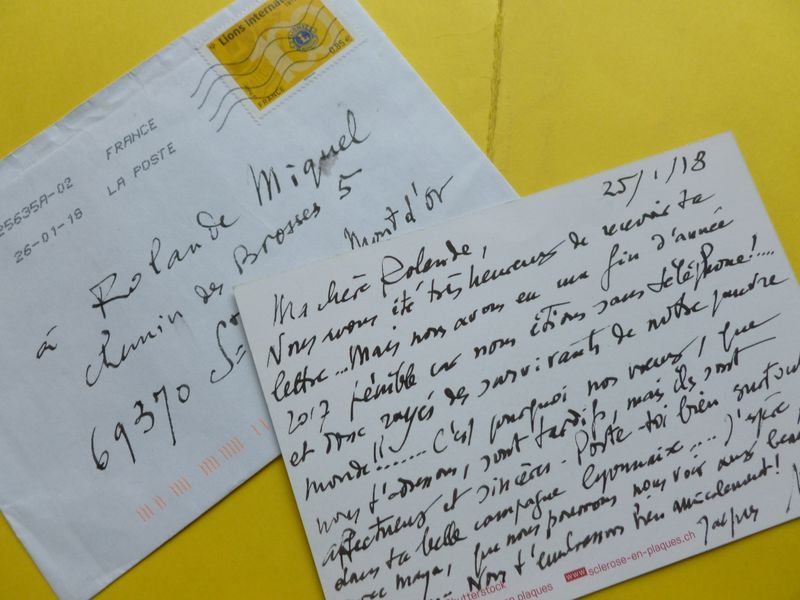 Lions International
0,85€
FRANCE
25635A-02 FRANCE
26-01-18 LA POSTE
à Rolande Miquel
chemin des Brosses 5
Mont d'or
69370 St
25/1/18
Ma chère Rolande,
Nous avons été très heureux de recevoir ta
lettre... Mais nous avons eu une fin d'année
2017 pénible car nous étions sans téléphone!....
et donc rayés des survivants de notre pauvre
monde!!........ C'est pourquoi nos vœux, que
nous t'adressons, sont tardifs, mais ils sont
affectueux et sincères. Porte-toi bien surtout
dans ta belle campagne lyonnaise.... J'espère
avec Maya, que nous pourrons nous voir aux beaux
... Nous t'embrassons bien amicalement!
Jacques
shutterstock
en plaques www sclerose-en-plaques.ch